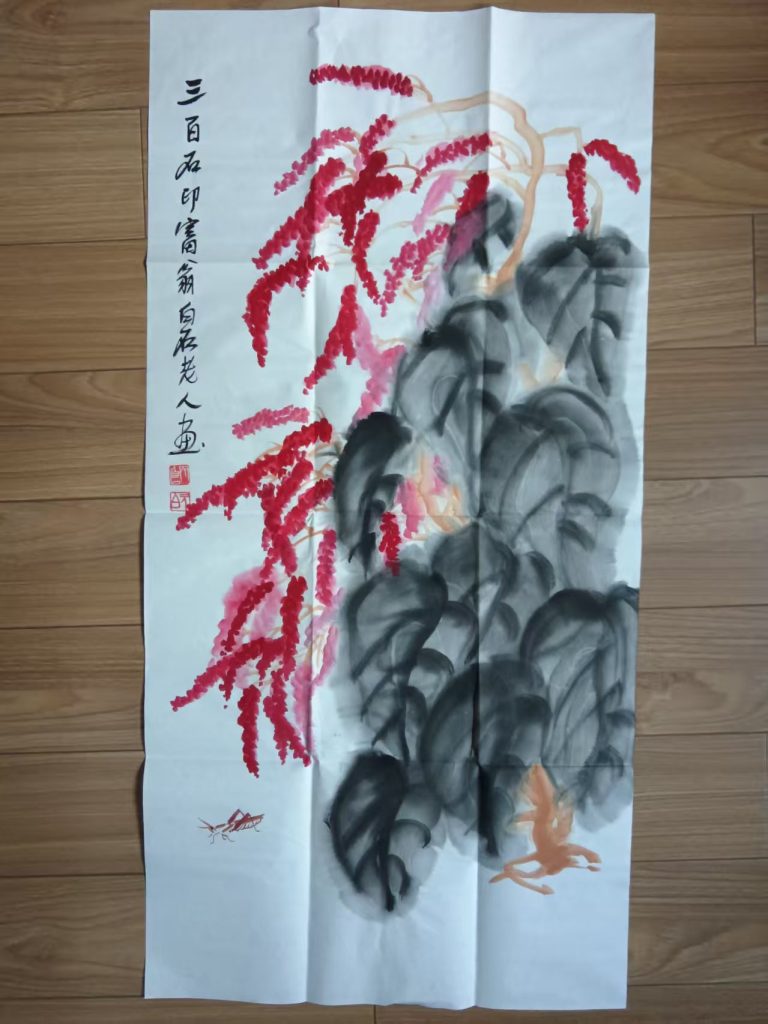 三百石印富翁白石老人畫